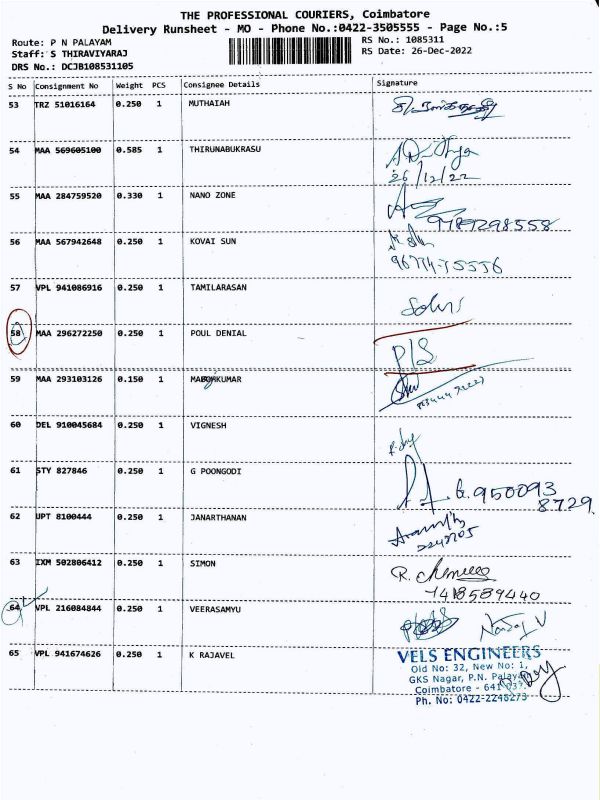 THE PROFESSIONAL COURIERS, Coimbatore
Delivery Runsheet - MO - Phone No.:0422-3505555 - Page No.:5
Route: P N PALAYAM
Staff: S THIRAVIYARAJ
DRS No.: DCJB108531105
RS No.: 1085311
RS Date: 26-Dec-2022
S No Consignment No Weight PCS Consignee Details Signature
53 TRZ 51016164 0.250 1 MUTHAIAH
54 MAA 569605100 0.585 1 THIRUNABUKRASU
26/12/22
55 MAA 284759520 0.330 1 NANO ZONE
9787298558
56 MAA 567942648 0.250 1 KOVAI SUN
57 VPL 941086916 0.250 1 TAMILARASAN
58 MAA 296272250 0.250 1 POUL DENIAL
P/S
59 MAA 293103126 0.150 1
60 DEL 910045684 0.250 1 VIGNESH
61 STY 827846 0.250 1 G POONGODI
G.950093
8729
62 UPT 8100444 0.250 1 JANARTHANAN
63 IXM 502806412 0.250 1 SIMON
7418589440
64 VPL 216084844 0.250 1 VEERASAMYU
65 VPL 941674626 0.250 1 K RAJAVEL
VELS ENGINEERS
Old No: 32, New No: 1,
GKS Nagar, P.N. Palayam
Coimbatore - 641 037.
Ph. No: 0422-2248273